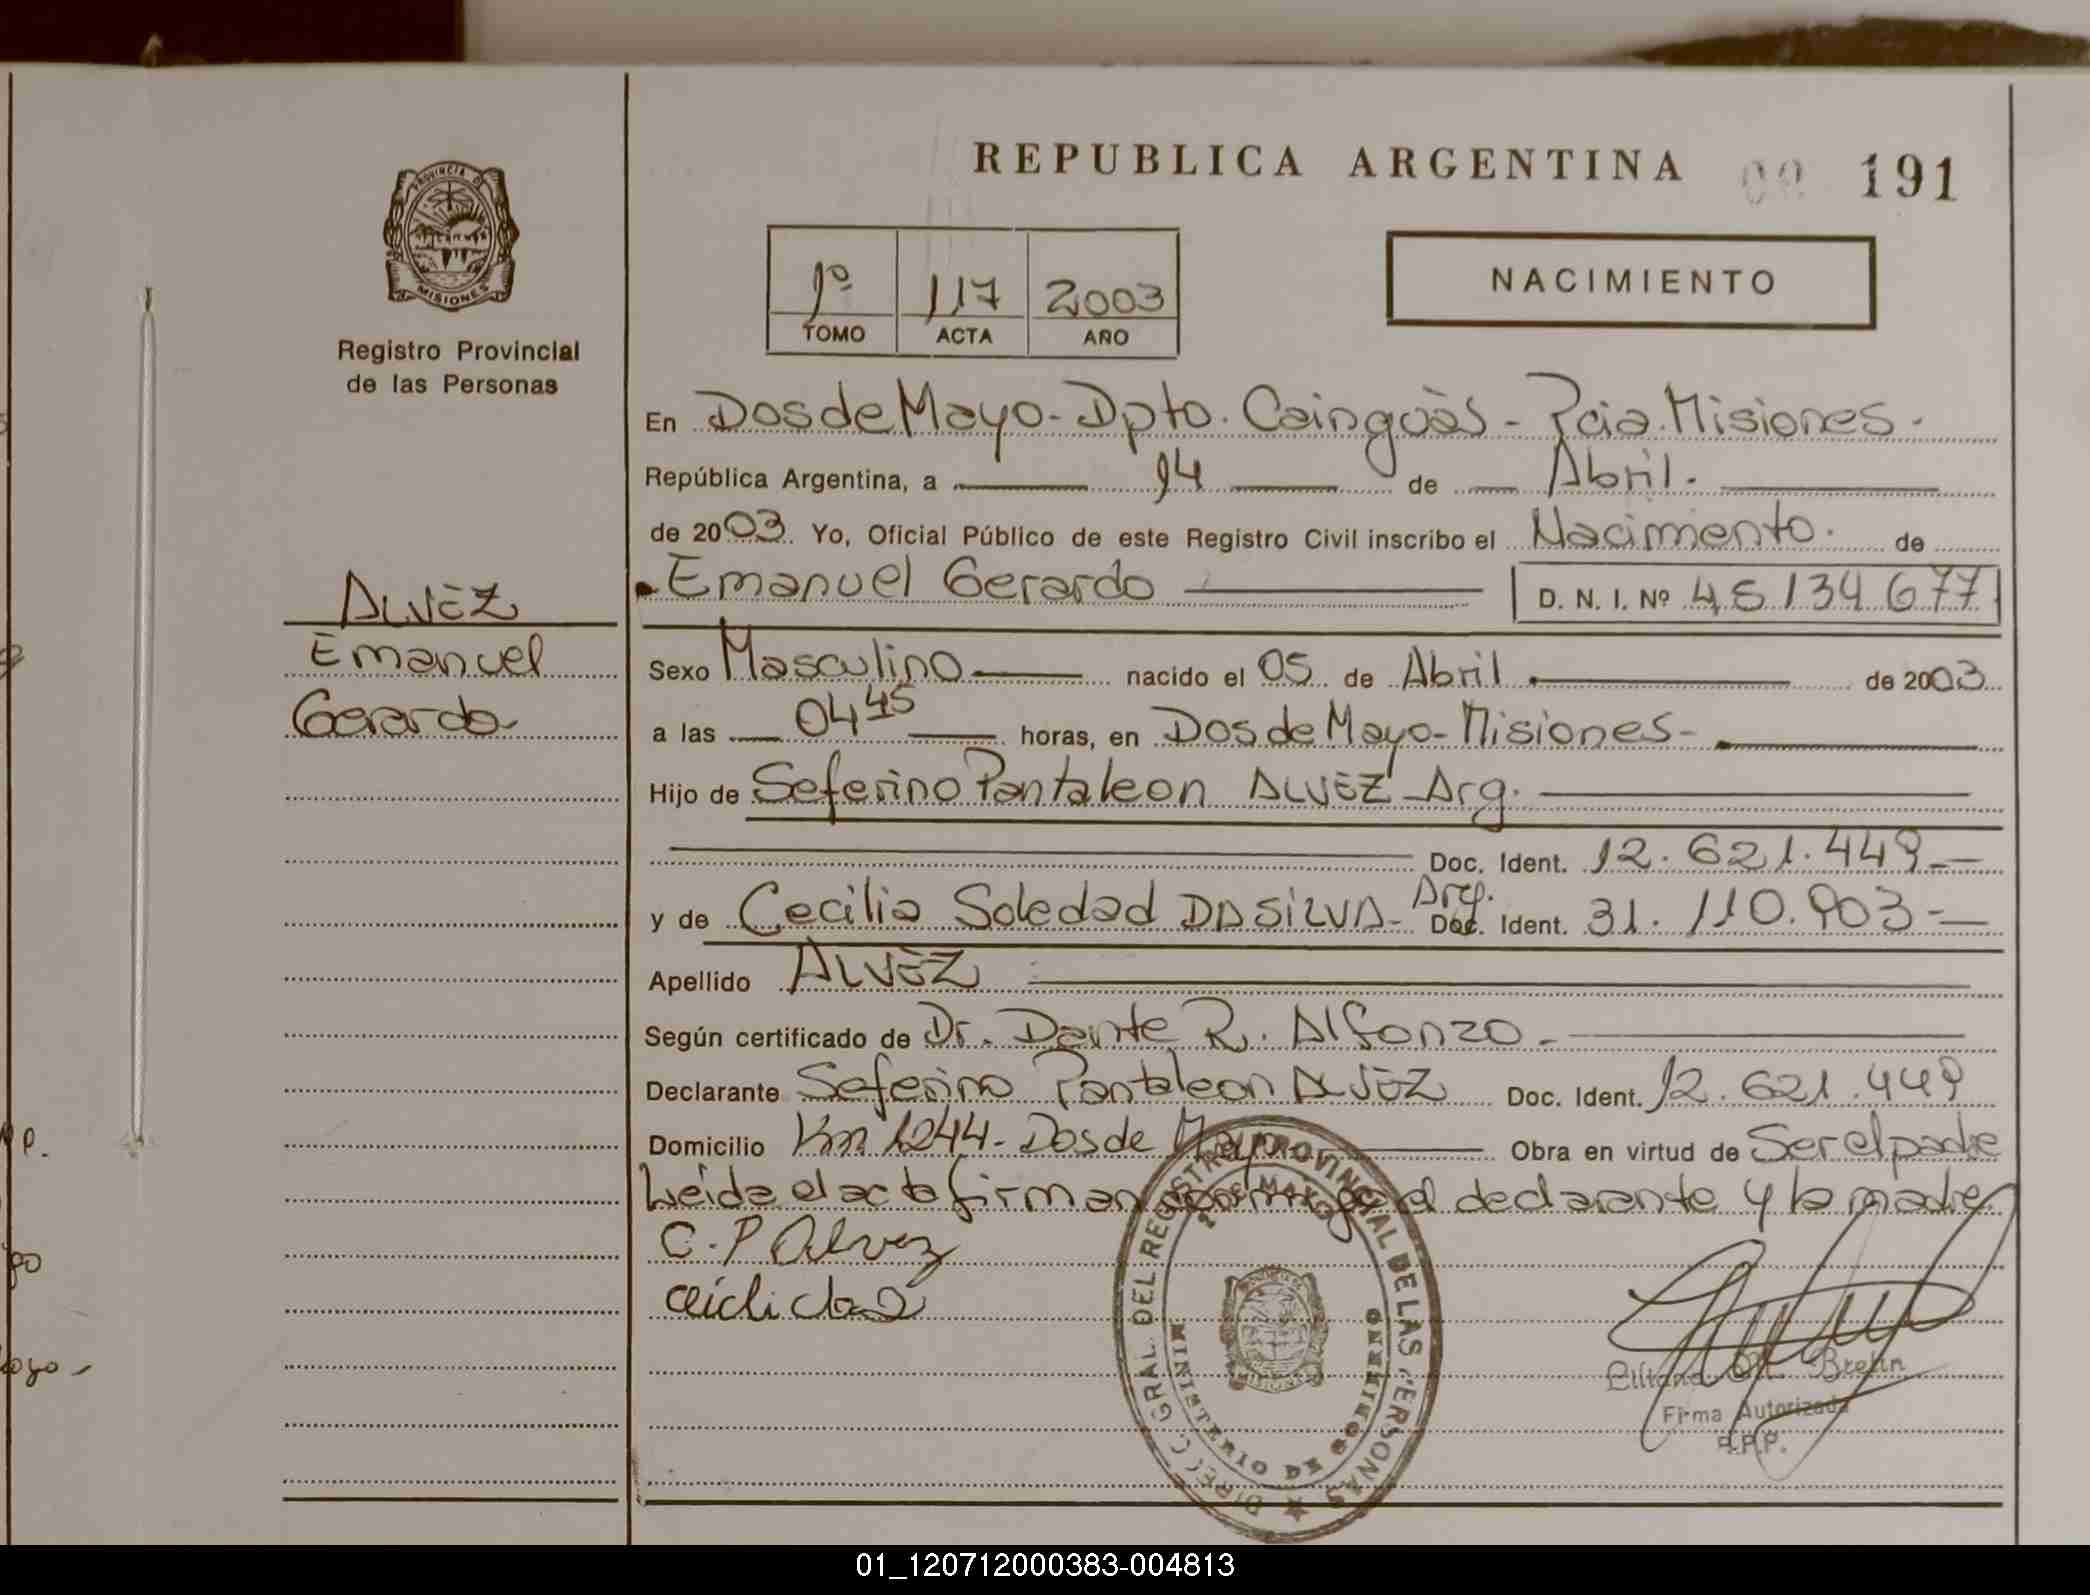 REPUBLICA ARGENTINA
191
PROVINCIA DE
MISIONES
Registro Provincial
de las Personas
1º 117 2003
TOMO ACTA AÑO
NACIMIENTO
En Dos de Mayo - Dpto. Cainguàs - Pcia. Misiones.
República Argentina, a 14 de Abril.
de 2003. Yo, Oficial Público de este Registro Civil inscribo el Nacimiento. de
Emanuel Gerardo D. N. I. Nº 45134677
ALVEZ
Emanuel
Gerardo
Sexo Masculino nacido el 05 de Abril de 2003
a las 04 45 horas, en Dos de Mayo - Misiones -
Hijo de Seferino Pantaleon ALVEZ - Arg.
Doc. Ident. 12.621.449
y de Cecilia Soledad DA SILVA - Arg. Doc. Ident. 31.110.903
Apellido ALVEZ
Según certificado de Dr. Dante R. Alfonzo -
Declarante Seferino Pantaleon ALVEZ Doc. Ident. 12.621.449
Domicilio Km 1244 - Dos de Mayo Obra en virtud de Ser el padre
Leida el acta firman conmigo el declarante y la madre
C. P Alvez
DIREC. GRAL. DEL REGISTRO PROVINCIAL DE LAS PERSONAS
2 DE MAYO
MINISTERIO DE GOBIERNO
Firma Autorizada
R.P.P.
01_120712000383-004813